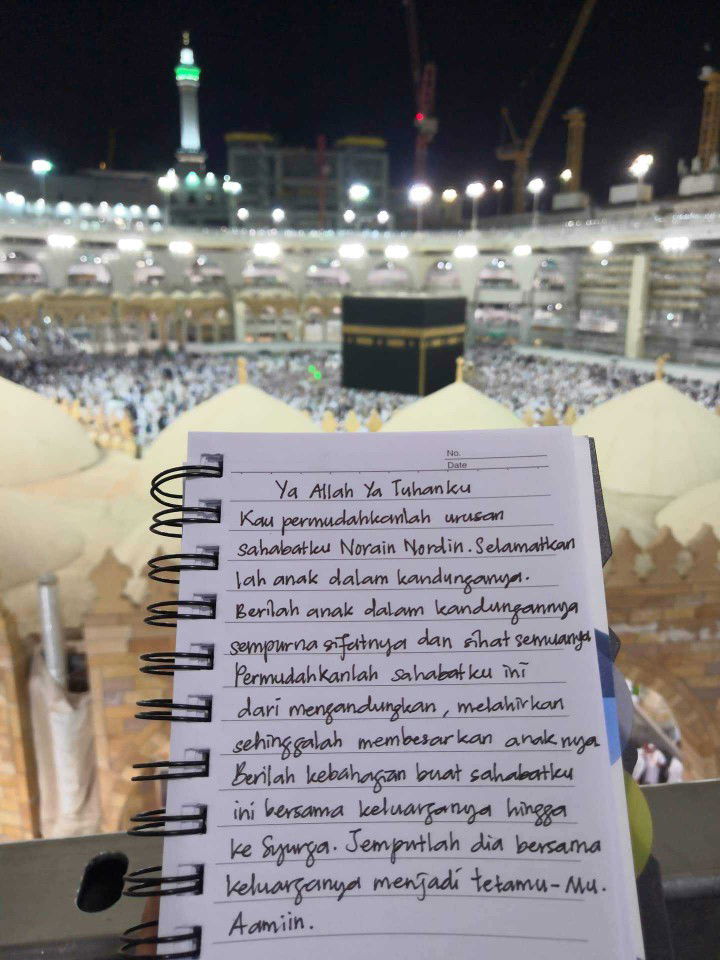 No.
Date
Ya Allah Ya Tuhanku
Kau permudahkanlah urusan
sahabatku Norain Nordin. Selamatkan
lah anak dalam kandunganya.
Berilah anak dalam kandungannya
sempurna sifatnya dan sihat semuanya
Permudahkanlah sahabatku ini
dari mengandungkan, melahirkan
sehinggalah membesarkan anaknya
Berilah kebahagian buat sahabatku
ini bersama keluarganya hingga
ke Syurga. Jemputlah dia bersama
keluarganya menjadi tetamu-Mu.
Aamiin.